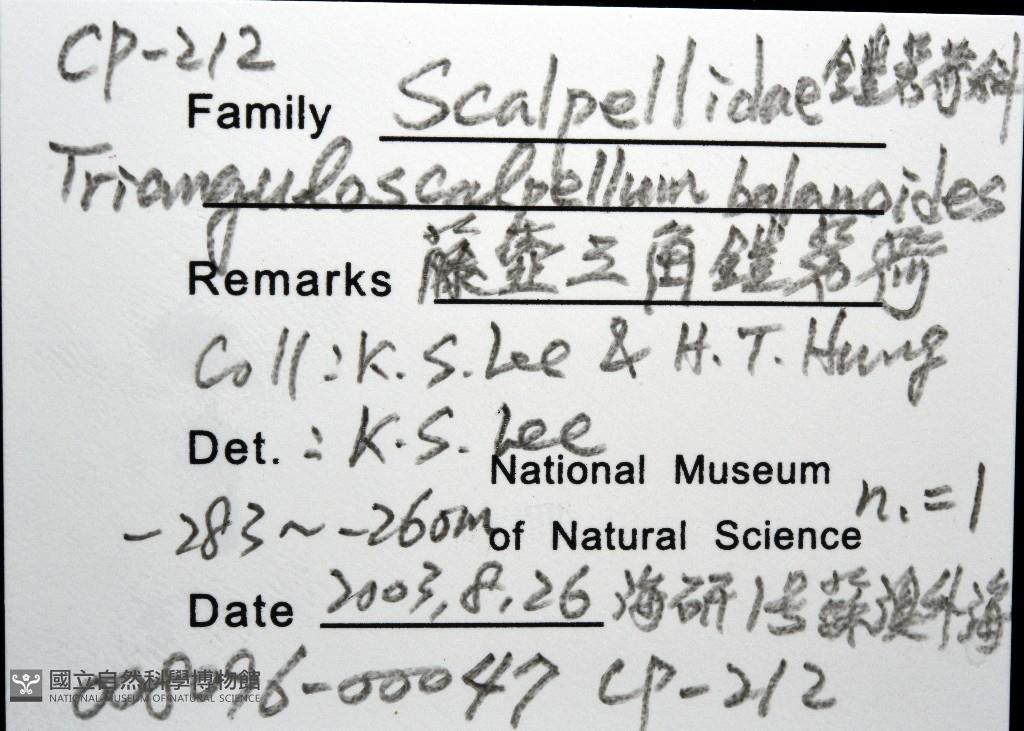 CP-212
Family Scalpellidae 鎧茗荷科
Trianguloscalpellum balanoides
Remarks 藤壺三角鎧茗荷
Coll : K. S. Lee & H. T. Hung
Det. : K. S. Lee
National Museum
-283~-260m of Natural Science n.=1
Date 2003.8.26 海研1号蘇澳外海
國立自然科學博物館
NATIONAL MUSEUM OF NATURAL SCIENCE
-00047 CP-212